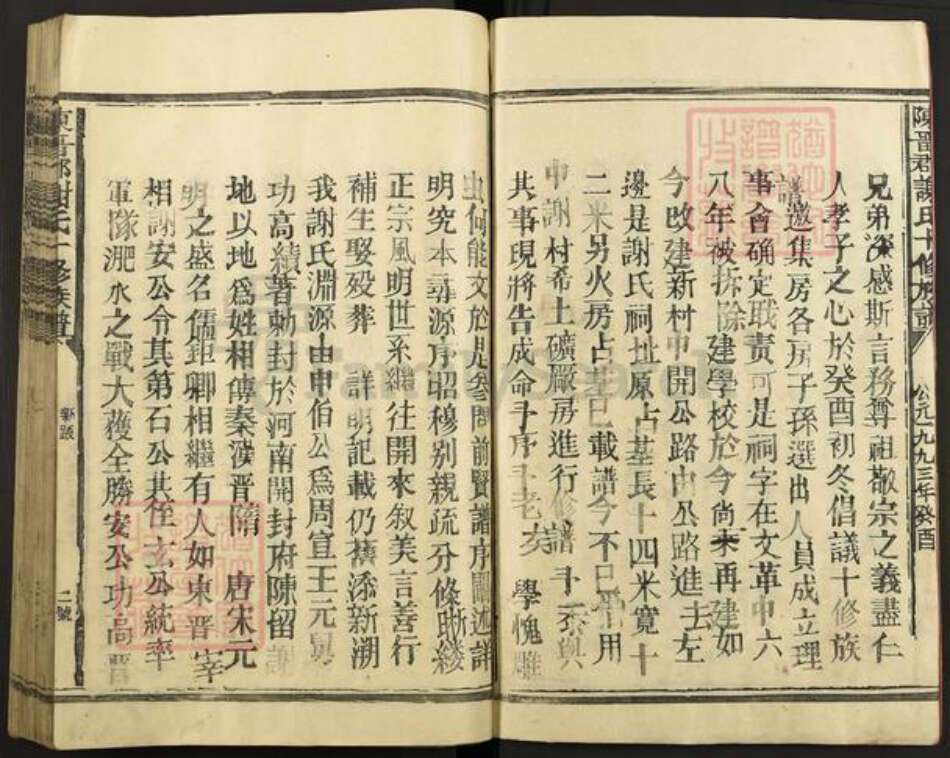 陳留郡謝氏十修族譜
公元一九九三年癸酉
兄弟深感斯言務尊祖敬宗之義盡仁
人孝子之心於癸酉初冬倡議十修族
譜邀集房各房子孫選出人員成立理
事會确定职责可是祠字在文革中六
八年被拆除建學校於今尚未再建如
今改建新村中開公路由公路進去左
邊是謝氏祠址原占基長十四米寬十
二米另火房占基已載譜今不已爲用
中謝村希土礦厰房進行修譜予忝與
共事現將告成命予序予老矣 學愧雕
虫何能文於是叅問前賢譜序闡述詳
明究本尋源序昭穆别親疏分條晰縷
正宗風明世系繼往開來叙美言善行
補生娶殁葬 詳明記載仍填添新溯
我謝氏淵源由申伯公爲周宣王元舅
功高績著勅封於河南開封府陳留
地以地爲姓相傳秦漢晋隋 唐宋元
明之盛名儒鉅卿相繼有人如東晋宰
相謝安公令其第石公共侄玄公統率
軍隊淝水之戰大獲全勝安公功高晋
氏十修族譜
二號